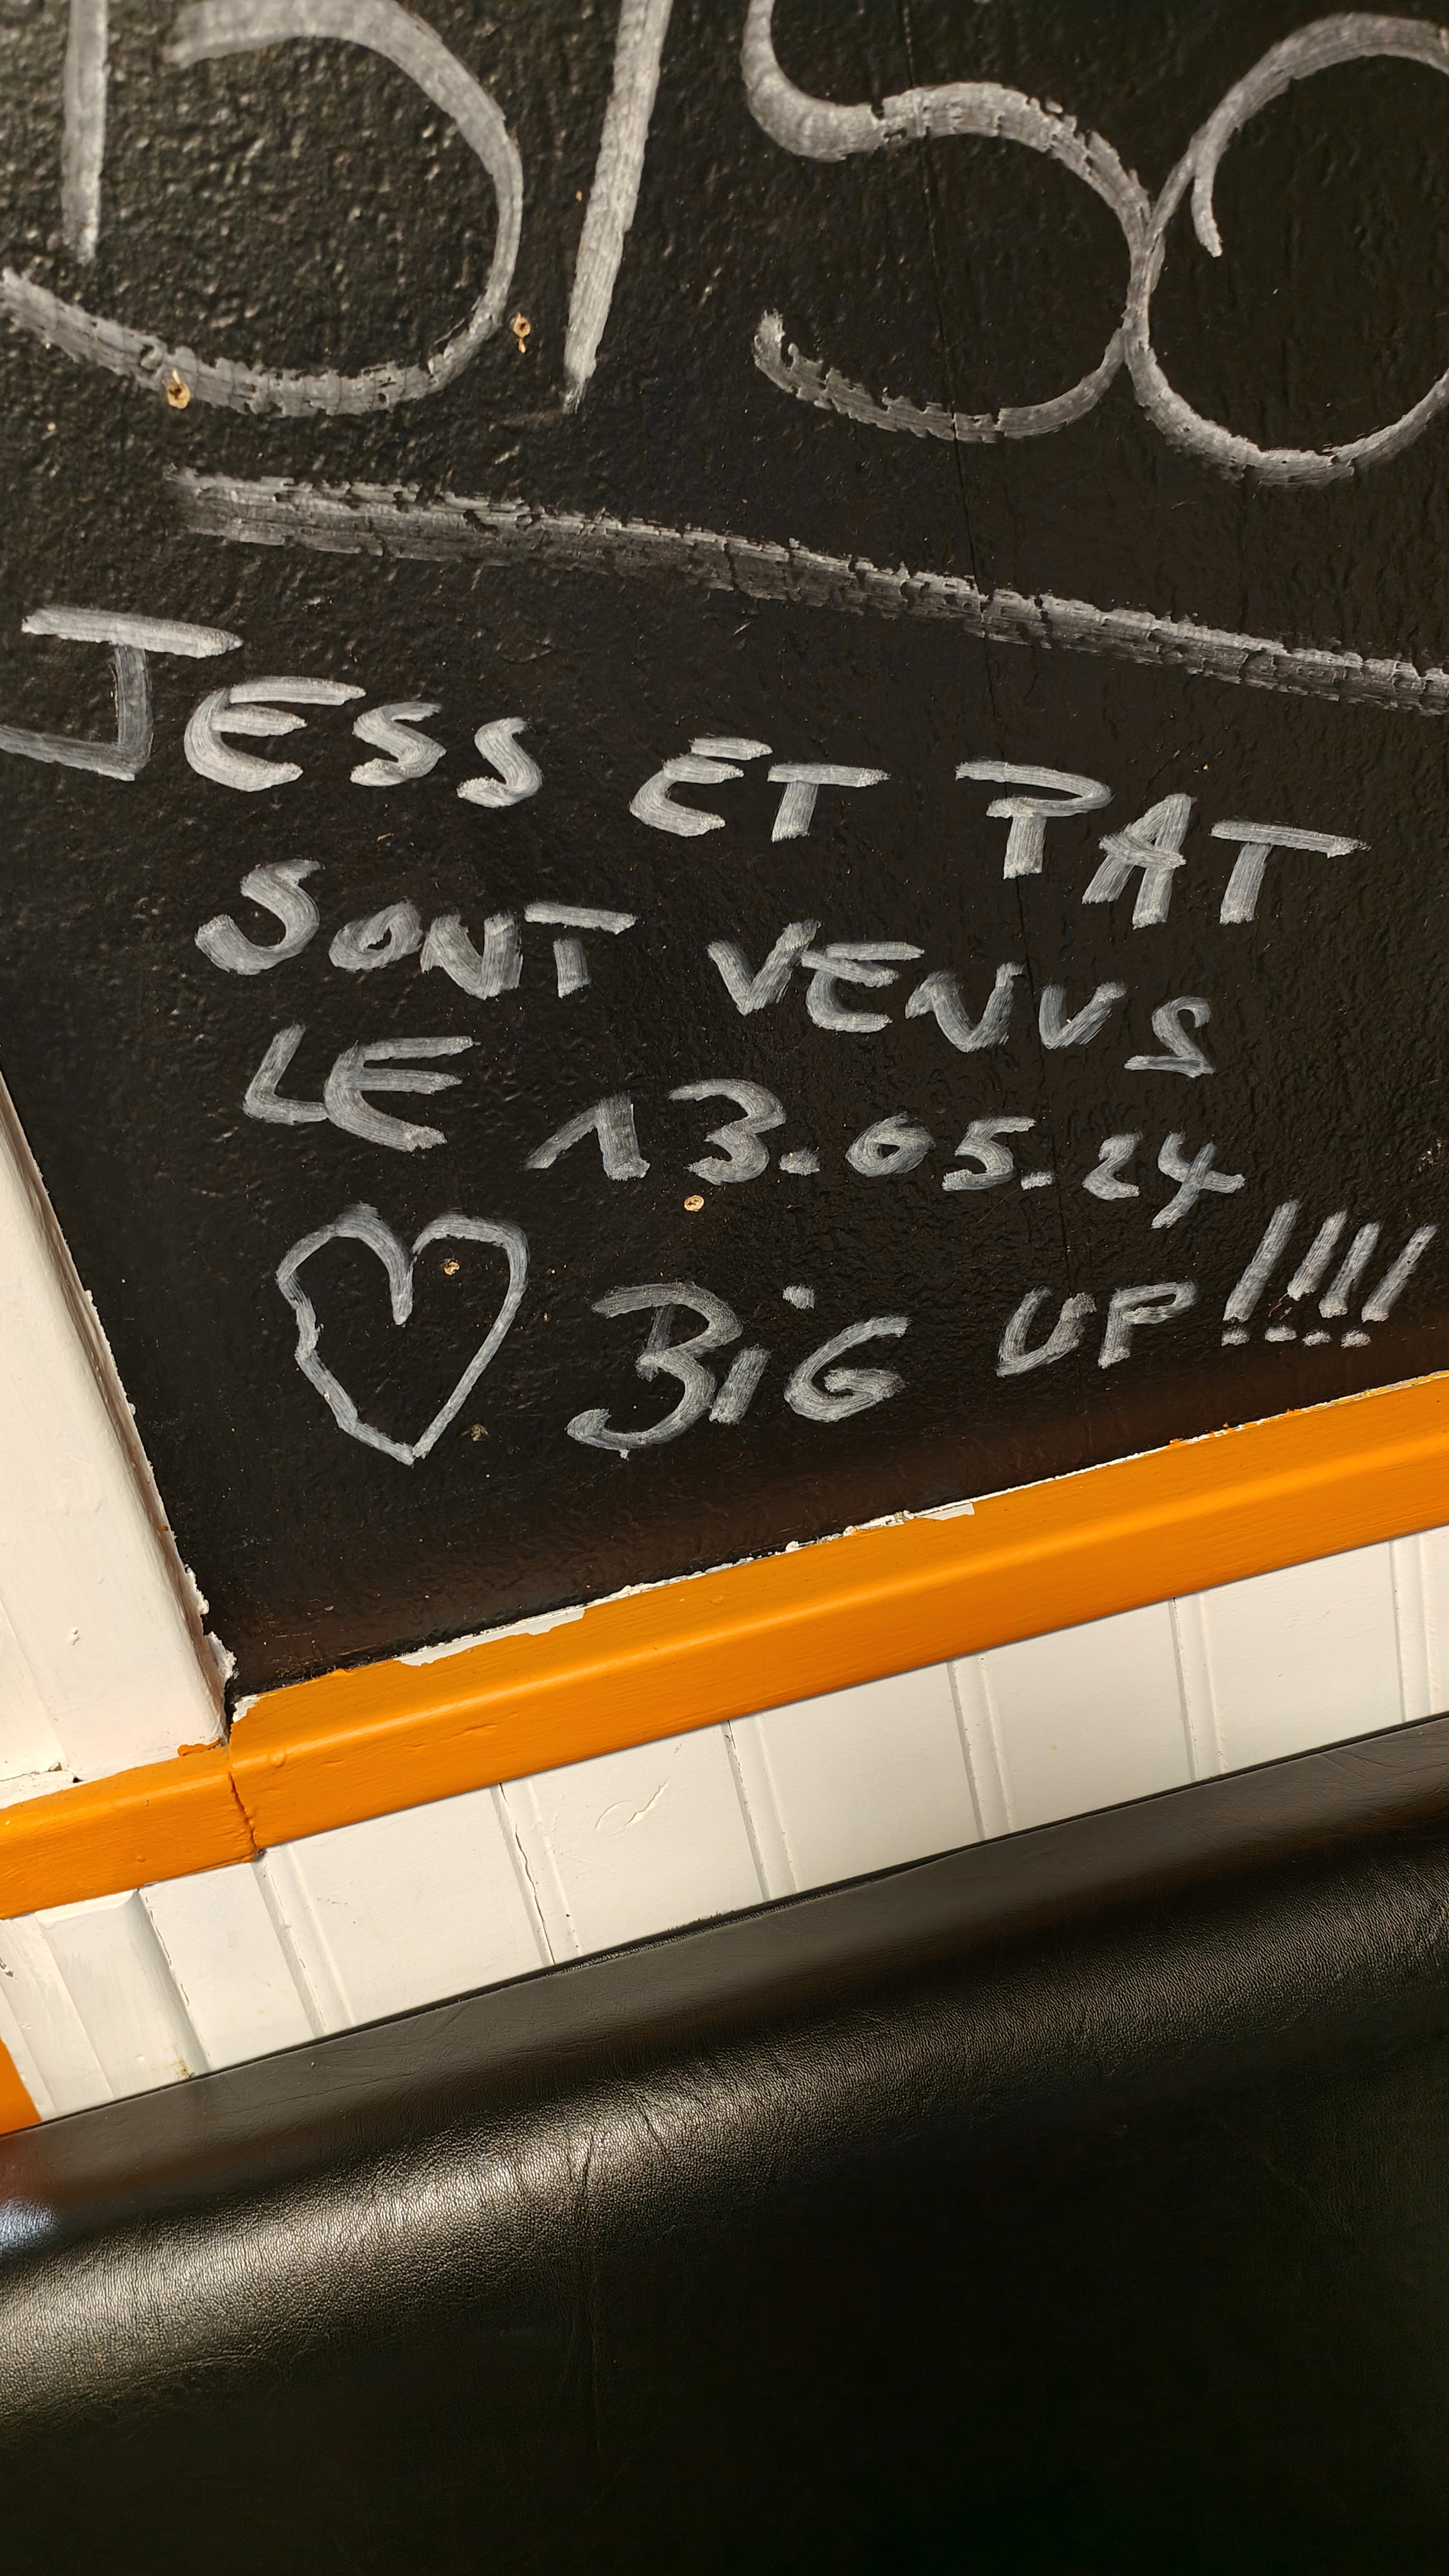 JESS ET PAT
SONT VENUS
LE 13.05.24
♡ BiG UP!!!!